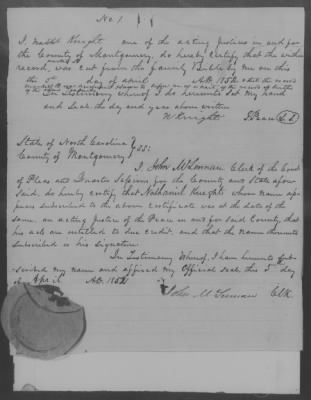 No. 1
I, Knight one of the acting Justices in and for
the County of Montgomery, do hereby certify that the within
record, was cut from the family Bible by me on this
the 5th day of April A.D. 1852
In Testimony whereof I do hereunto set my hand
and Seal the day and year above written
N. Knight J Peace
State of North Carolina } SS:
County of Montgomery
I, John McLennan Clerk of the Court
of Pleas and Quarter Sessions for the County and State afore
said, do hereby certify that Nathaniel Knight whose name ap-
pears subscribed to the above certificate was at the date of the
same, an acting Justice of the Peace in and for said County, that
his acts are entitled to due credit, and that the name thereunto
subscribed is his signature.
In Testimony Whereof, I have hereunto sub-
scribed my name and affixed my Official Seal this 5th day
of April A.D. 1852
John McLennan Clk.